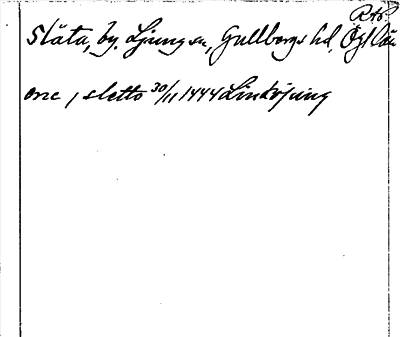 RAp.
Släta, by, Ljungs sn, Gullbergs hd, Ögl län
one, sletto 30/11 1444 Linköping